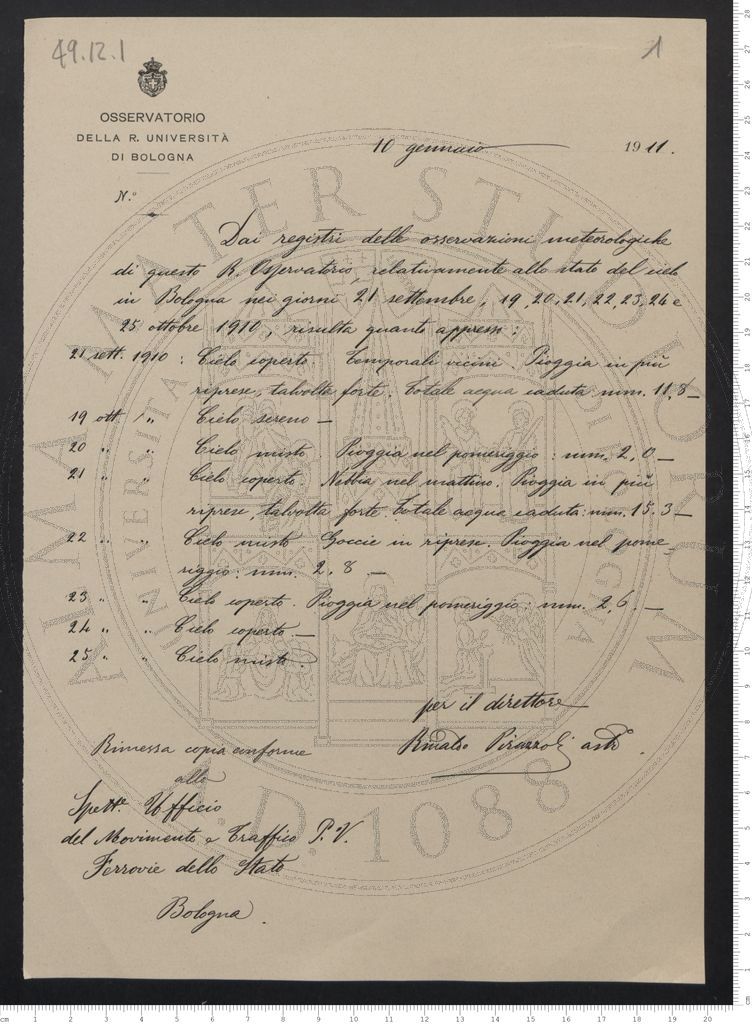 49.12.1
1
OSSERVATORIO
DELLA R. UNIVERSITÀ
DI BOLOGNA
10 gennaio 1911.
N.°
Dai registri delle osservazioni meteorologiche
di questo R. Osservatorio, relativamente allo stato del cielo
in Bologna nei giorni 21 settembre, 19, 20, 21, 22, 23, 24 e
25 ottobre 1910, risulta quanto appresso:
21 sett. 1910 : Cielo coperto. Temporali vicini. Pioggia in più
riprese, talvolta forte. Totale acqua caduta mm. 11,8 —
19 ott. " Cielo sereno —
20 " " Cielo misto. Pioggia nel pomeriggio: mm. 2,0 —
21 " " Cielo coperto. Nebbia nel mattino. Pioggia in più
riprese, talvolta forte. Totale acqua caduta: mm. 15.3 —
22 " " Cielo misto. Goccie in riprese. Pioggia nel pome-
riggio: mm. 2,8 —
23 " " Cielo coperto. Pioggia nel pomeriggio: mm. 2,6. —
24 " " Cielo coperto —
25 " " Cielo misto.
per il direttore
Rinaldo Pirazzoli astr.
Rimessa copia conforme
allo
Spett.e Ufficio
del Movimento e Traffico P. V.
Ferrovie dello Stato
Bologna.
ALMA MATER STUDIORUM
UNIVERSITÀ
A.D. 1088